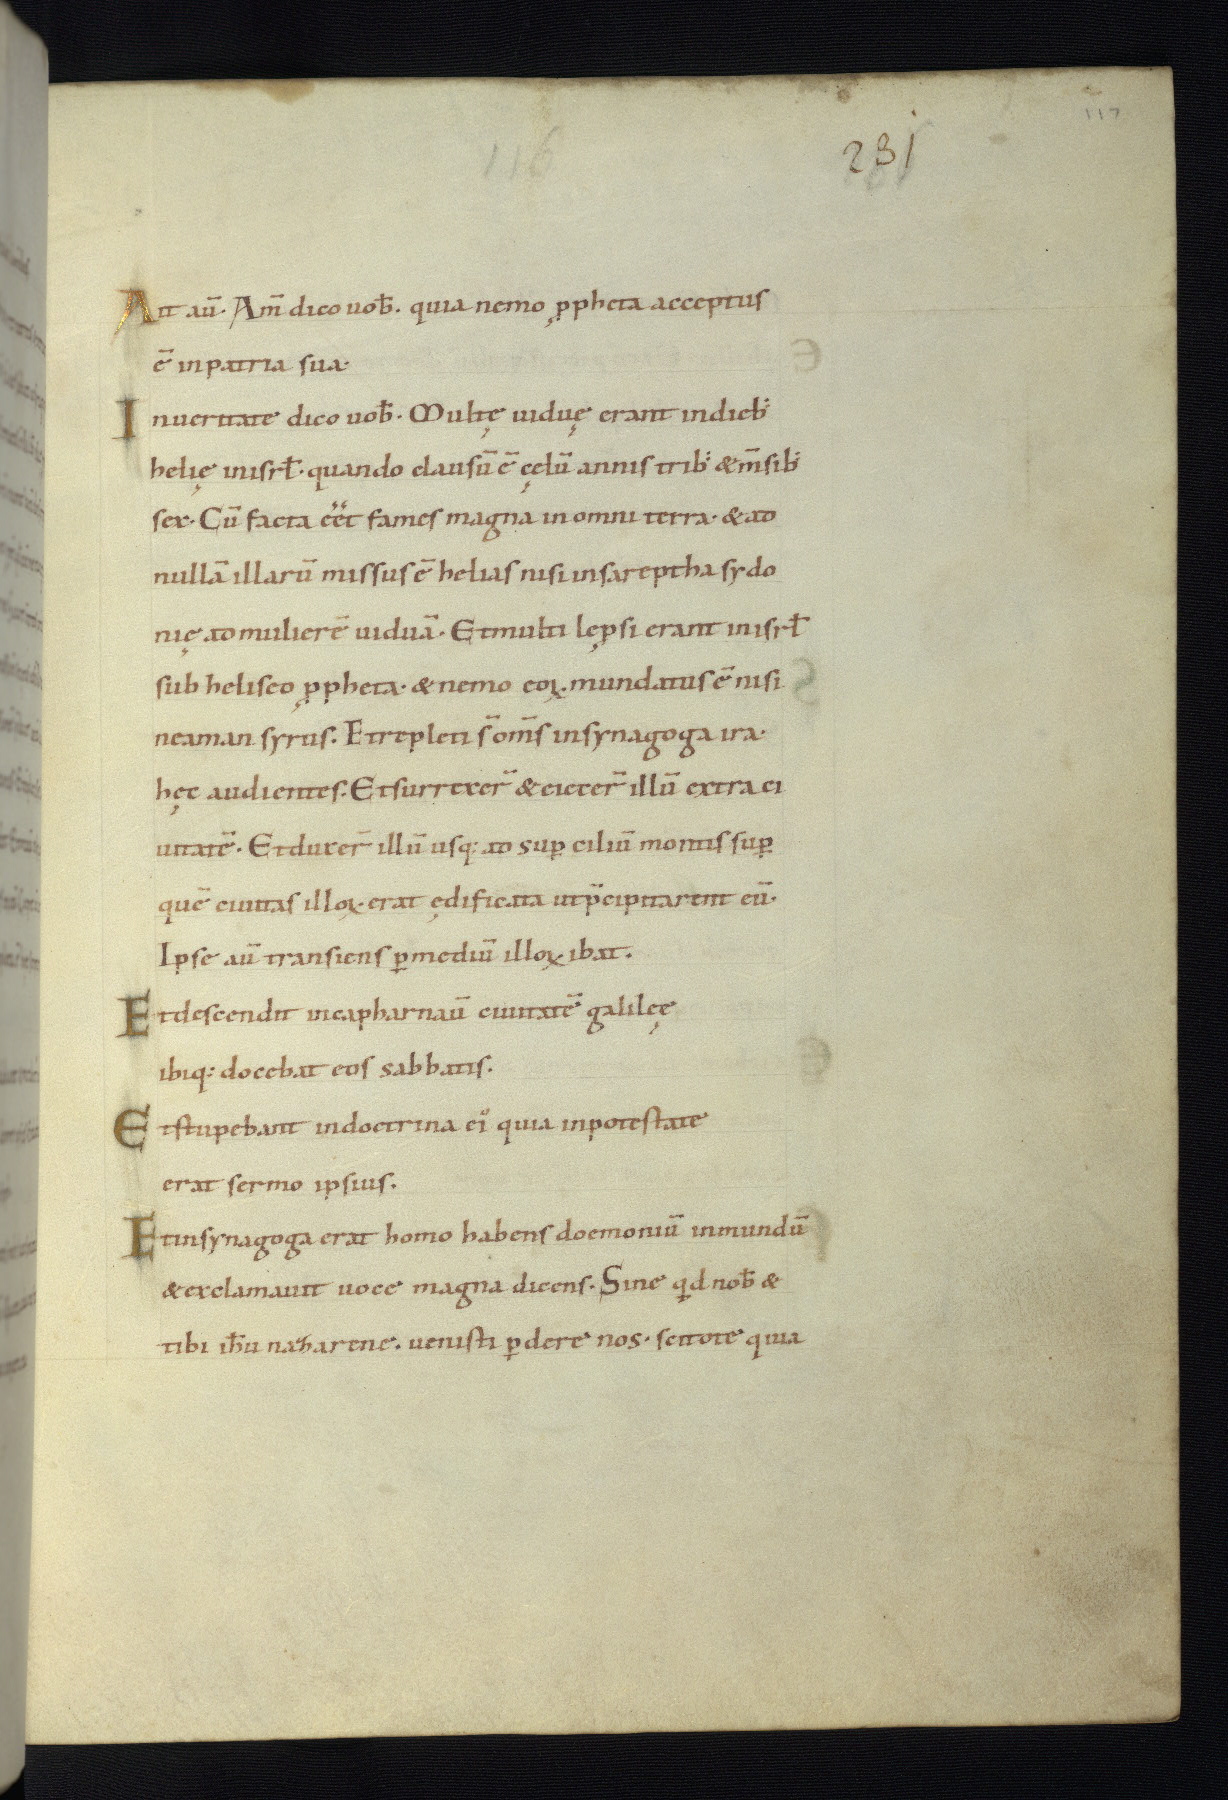 117
116
231
Ait aū. Am̄ dico uob̄. quia nemo ꝓpheta acceptus
ē in patria sua.
In ueritate dico uob̄. Multę uiduę erant in dieb;
helię in isrł. quando clausū ē cęlū annis trib; & m̄sib;
sex. Cū facta eēt fames magna in omni terra. & ad
nullā illarū missus ē helias nisi in sareptha sydo
nię ad mulierē uiduā. Et multi lęprsi erant in isrł
sub heliseo ꝓpheta. & nemo eoꝝ mundatus ē nisi
neaman syrus. Et repleti s̄ om̄s in synagoga ira.
hęc audientes. Et surrexer̄ & eiecer̄ illū extra ci
uitatē. Et duxer̄ illū usq; ad suꝑ ciliū montis suꝑ
quē ciuitas illoꝝ erat ędificata ut p̄cipitarent eū.
Ipse aū transiens ꝑ mediū illoꝝ ibat.
Et descendit in capharnaū ciuitatē galileę
ibiq; docebat eos sabbatis.
Et stupebant in doctrina ei᷒ quia in potestate
erat sermo ipsius.
Et in synagoga erat homo habens doemoniū inmundū
& exclamauit uoce magna dicens. Sine qͥd nob̄ &
tibi ih̄u nazarene. uenisti ꝑdere nos. scitote quia